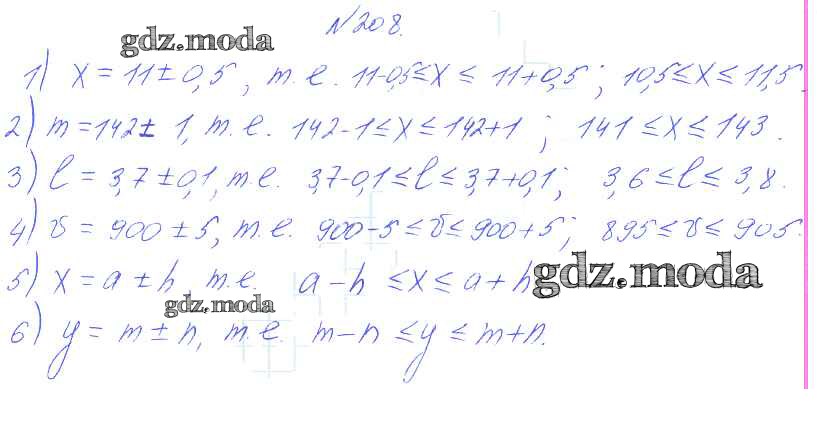 №208.
gdz.moda
1) x = 11 ± 0,5, т.е. 11-0,5 ≤ x ≤ 11+0,5; 10,5 ≤ x ≤ 11,5.
2) m = 142 ± 1, т.е. 142-1 ≤ x ≤ 142+1; 141 ≤ x ≤ 143.
3) l = 3,7 ± 0,1, т.е. 3,7-0,1 ≤ l ≤ 3,7+0,1; 3,6 ≤ l ≤ 3,8.
4) v = 900 ± 5, т.е. 900-5 ≤ v ≤ 900+5; 895 ≤ v ≤ 905.
5) x = a ± h, т.е. a-h ≤ x ≤ a+h
gdz.moda
gdz.moda
6) y = m ± n, т.е. m-n ≤ y ≤ m+n.